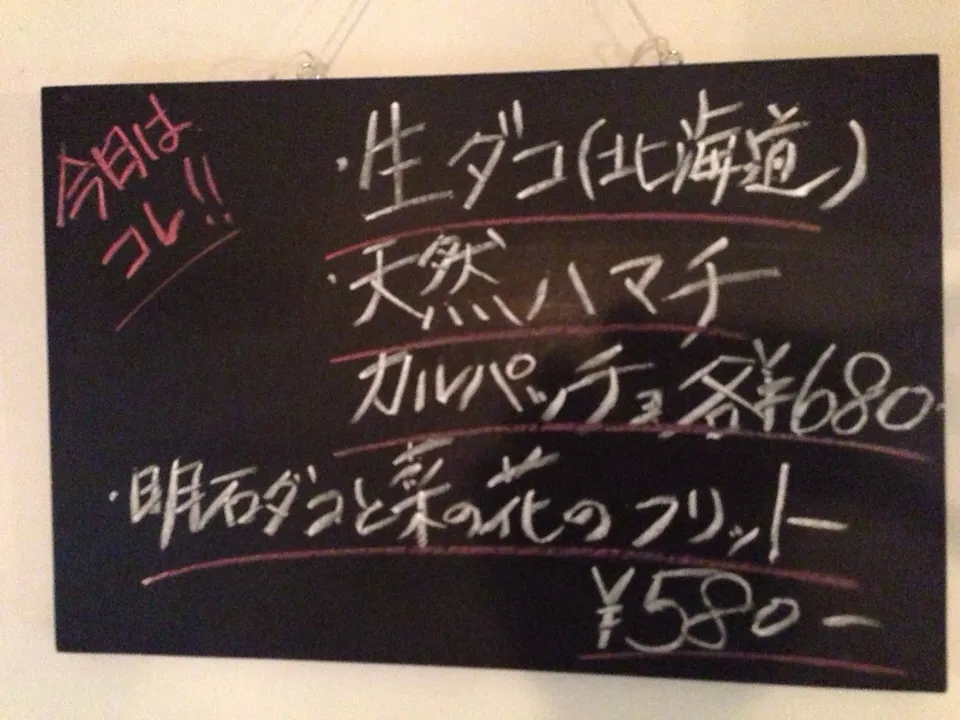 今日は
コレ!!
・生ダコ(北海道)
・天然ハマチ
カルパッチョ各¥680-
・明石ダコと菜の花のフリット
¥580-